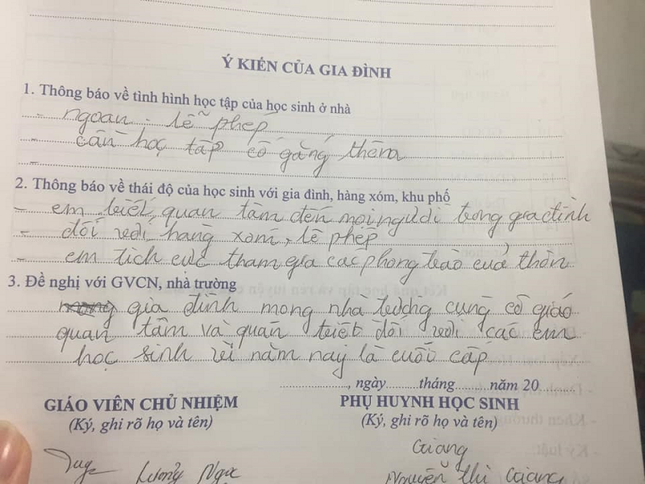 Ý KIẾN CỦA GIA ĐÌNH
1. Thông báo về tình hình học tập của học sinh ở nhà
- ngoan. lễ phép
- cần học tập cố gắng thêm
-
2. Thông báo về thái độ của học sinh với gia đình, hàng xóm, khu phố
- em biết quan tâm đến mọi người trong gia đình
- đối với hàng xóm, lễ phép
- em tích cực tham gia các phong trào của thôn
3. Đề nghị với GVCN, nhà trường
gia đình mong nhà trường cùng cô giáo
quan tâm và quán triệt đối với các em
học sinh vì năm nay là cuối cấp
, ngày tháng năm 20
GIÁO VIÊN CHỦ NHIỆM PHỤ HUYNH HỌC SINH
(Ký, ghi rõ họ và tên) (Ký, ghi rõ họ và tên)
Giang
Lương Ngọc Nguyễn Thị Giang